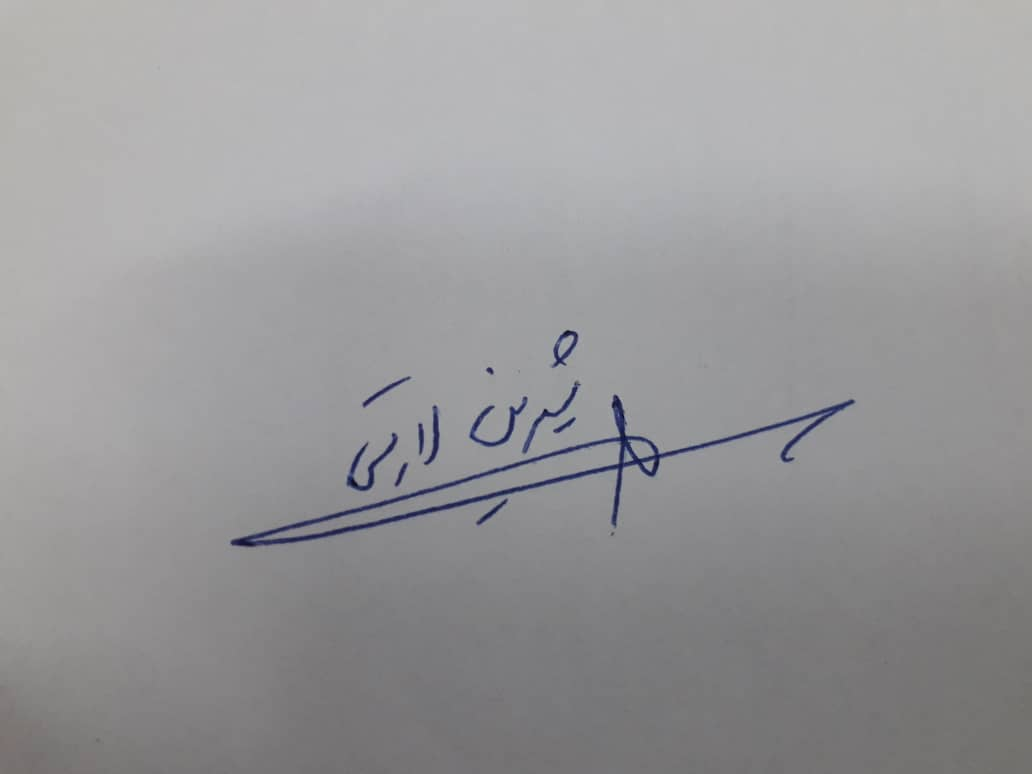 شیرین لارتی